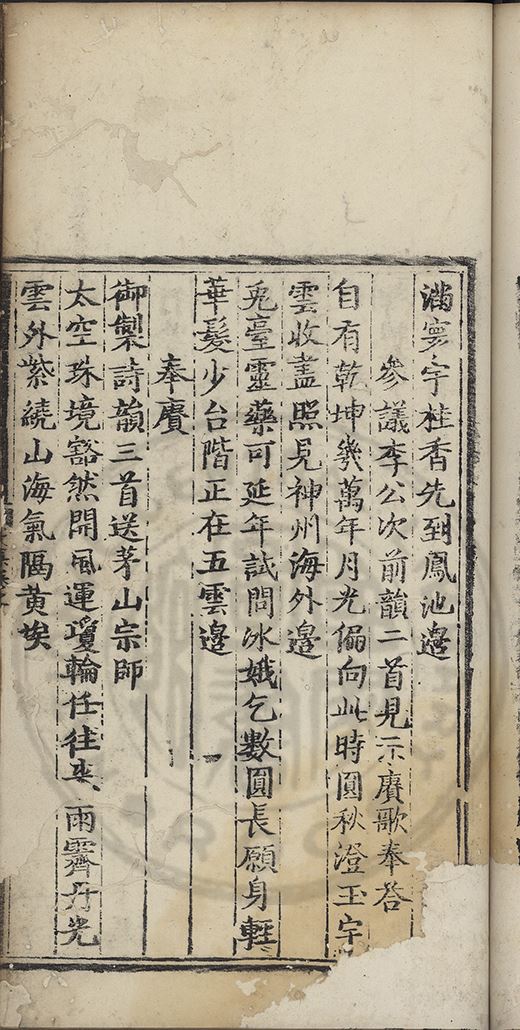 滿寰宇桂香先到鳳池邊
參議李公次前韻二首見示賡歌奉荅
自有乾坤幾萬年月光偏向此時圓秋澄玉宇
雲收盡照見神州海外邊
兎臺靈藥可延年試問冰娥乞數圓長願身輕
華髮少台階正在五雲邊
奉賡
御製詩韻三首送茅山宗師
太空珠境豁然開風運瓊輪任往來雨霽丹光
雲外紫繞山海氣隔黃埃